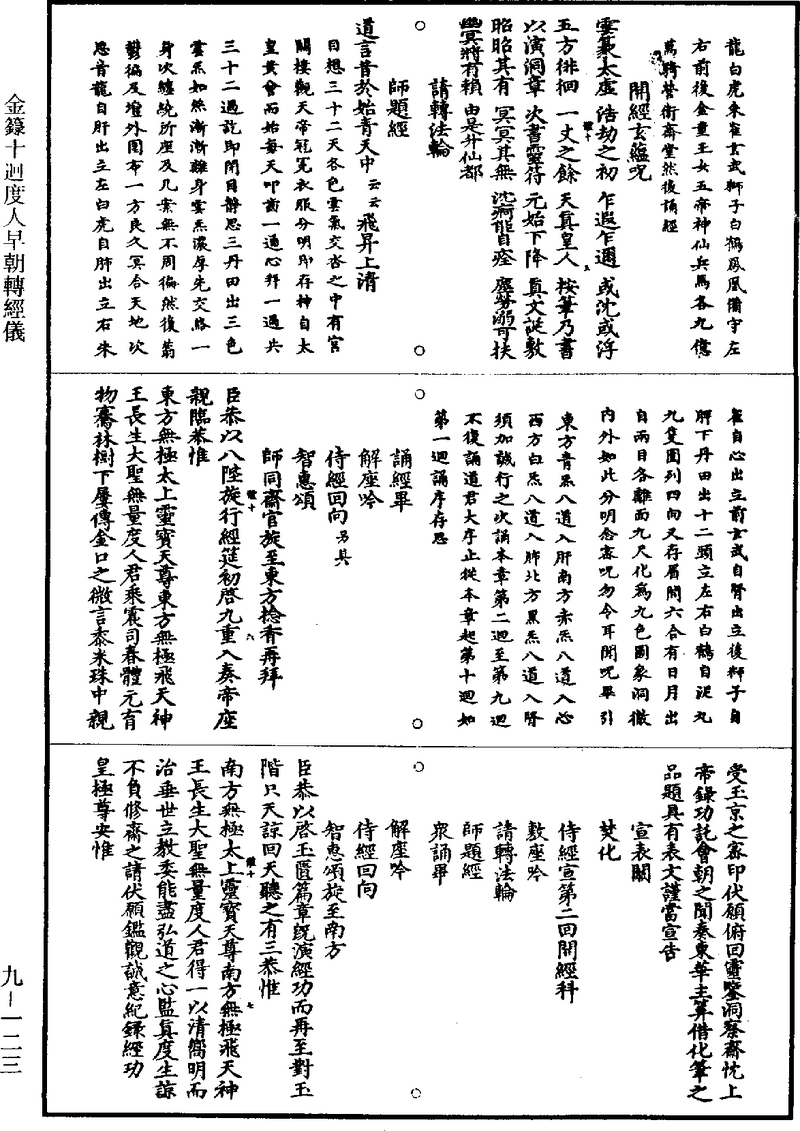 龍白虎朱雀玄武獅子白鶴鳳凰備守左
右前後金童玉女五帝神仙兵馬各九億
萬騎營衛齋堂然後誦經
開經玄蘊呪
雲篆太虛 浩劫之初 乍遐乍邇 或沈或浮
五方徘徊 一丈之餘 天真皇人 按筆乃書
以演洞章 次書靈符 元始下降 真文誕敷
昭昭其有 冥冥其無 沈痾能自痊 塵勞溺可扶
幽冥將有賴 由是升仙都
請轉法輪
師題經
道言昔於始青天中 云云 飛昇上清
目想三十二天各色雲氣交沓之中有宮
闕樓觀天帝冠冕衣服分明即存神自太
皇黃曾而始每天叩齒一通心拜一過共
三十二過訖即閉目靜思三丹田出三色
雲炁如絲漸漸離身雲炁濃厚先交絡一
身次纏繞所座及几案無不周徧然後蓊
鬱徧及壇外圍布一方良久冥合天地次
思青龍自肝出立左白虎自肺出立右朱
雀自心出立前玄武自腎出立後獅子自
脾下丹田出十二頭立左右白鶴自泥丸
九隻圍列四向又存眉間六合有日月出
自兩目各離面九尺化為九色圓象洞徹
內外如此分明念密呪勿令耳聞呪畢引
東方青炁八道入肝南方赤炁八道入心
西方白炁八道入肺北方黑炁八道入腎
須加誠行之次誦本章第二迴至第九迴
不復誦道君大序止從本章起第十迴如
第一迴誦序存思
誦經畢
解座吟
侍經回向 另具
智惠頌
師同齋官旋至東方捻香再拜
臣恭以八陛旋行經筵初啓九重入奏帝座
親臨恭惟
東方無極太上靈寶天尊東方無極飛天神
王長生大聖無量度人君乘震司春體元有
物騫林樹下屢傳金口之微言黍米珠中親
受玉京之密印伏願俯回靈鑒洞察齋忱上
帝錄功託會朝之聞奏東華主筭借化筆之
品題具有表文謹當宣告
宣表關
焚化
侍經宣第二回開經科
敷座吟
請轉法輪
師題經
衆誦畢
解座吟
侍經回向
智惠頌旋至南方
臣恭以啓玉匱篇章旣演經功而再至對玉
階只天諒回天聽之有三恭惟
南方無極太上靈寶天尊南方無極飛天神
王長生大聖無量度人君得一以清嚮明而
治垂世立教委能盡弘道之心監真度生諒
不負修齋之請伏願鑑觀誠意紀錄經功
皇極尊安惟
金籙十迴度人早朝轉經儀
九—一二三